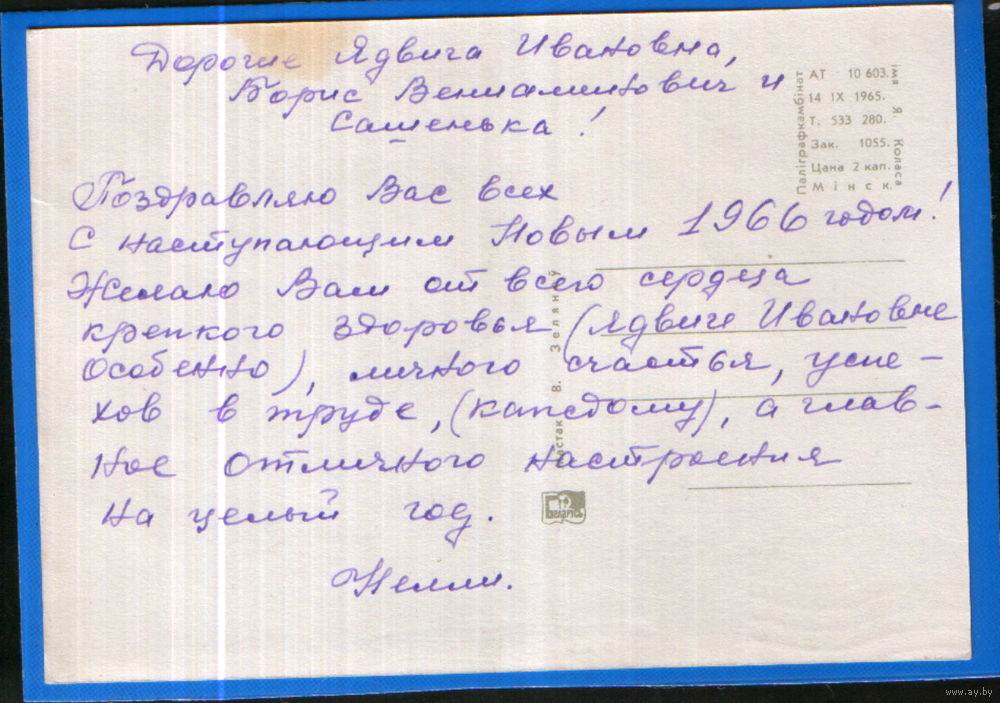 Дорогие Ядвига Ивановна,
Борис Вениаминович и
Сашенька!
Поздравляю Вас всех
С наступающим Новым 1966 годом!
Желаю Вам от всего сердца
крепкого здоровья (Ядвиге Ивановне
особенно), личного счастья, успе-
хов в труде, (каждому), а глав-
ное отличного настроения
на целый год.
Нелли.
АТ 10 603.
14 IX 1965.
Т. 533 280.
Зак. 1055.
Цана 2 кап.
Мінск.
Паліграфкамбінат
імя Я. Коласа
Мастак В.
www.ay.by